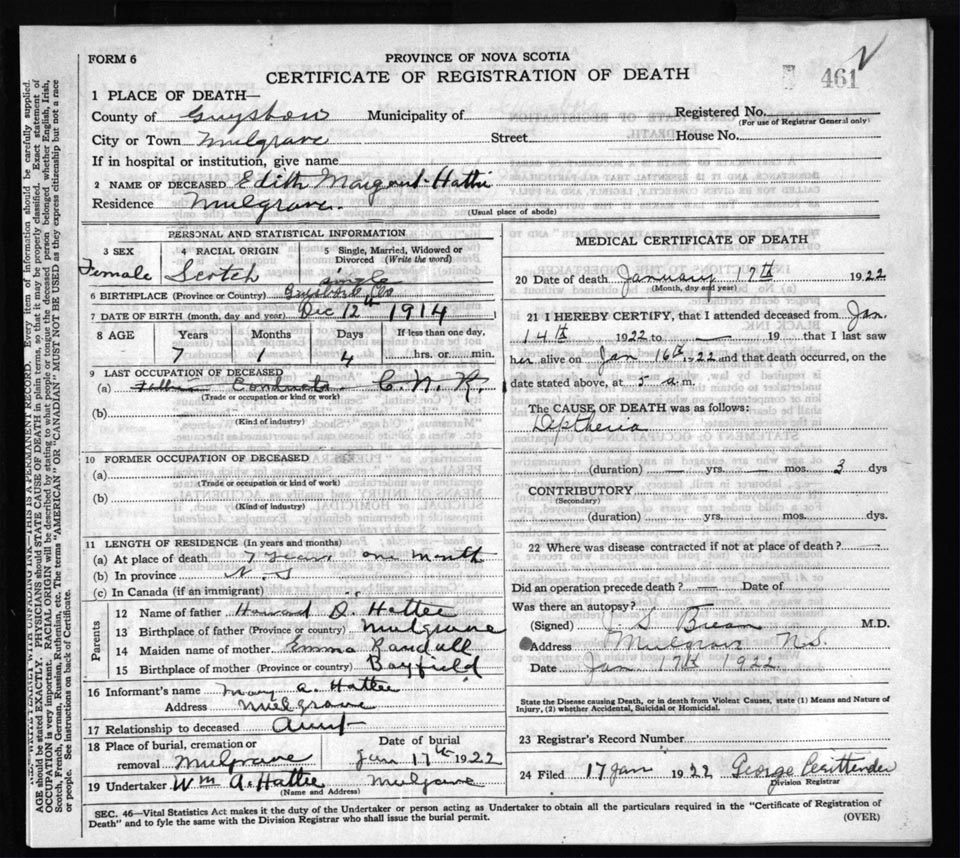 FORM 6
PROVINCE OF NOVA SCOTIA
CERTIFICATE OF REGISTRATION OF DEATH
461
1 PLACE OF DEATH—
County of Guysboro Municipality of Registered No.
(For use of Registrar General only)
City or Town Mulgrave Street House No.
If in hospital or institution, give name
2 NAME OF DECEASED Edith Margaret Hattie
Residence Mulgrave.
(Usual place of abode)
PERSONAL AND STATISTICAL INFORMATION
3 SEX 4 RACIAL ORIGIN 5 Single, Married, Widowed or Divorced (Write the word)
Female Scotch Single
6 BIRTHPLACE (Province or Country) Guysboro Co
7 DATE OF BIRTH (month, day and year) Dec 12th 1914
8 AGE Years Months Days If less than one day,
7 1 4 hrs. or min.
9 LAST OCCUPATION OF DECEASED
(a) Father C.N.R.
(Trade or occupation or kind or work)
(b)
(Kind of industry)
10 FORMER OCCUPATION OF DECEASED
(a)
(Trade or occupation or kind of work)
(b)
(Kind of industry)
11 LENGTH OF RESIDENCE (In years and months)
(a) At place of death 7 years one month
(b) In province N.S
(c) In Canada (if an immigrant)
Parents
12 Name of father Howard D. Hattie
13 Birthplace of father (Province or country) Mulgrave
14 Maiden name of mother Emma Randall
15 Birthplace of mother (Province or country) Bayfield
16 Informant's name Mary A. Hattie
Address Mulgrave
17 Relationship to deceased Aunt
18 Place of burial, cremation or removal Mulgrave Date of burial Jan 17th 1922
19 Undertaker Wm A. Hattie Mulgrave
(Name and Address)
MEDICAL CERTIFICATE OF DEATH
20 Date of death January 17th 1922
(Month, day and year)
21 I HEREBY CERTIFY, that I attended deceased from Jan.
14th 1922 to — 19 that I last saw
her alive on Jan 16th 1922 and that death occurred, on the
date stated above, at 5 a.m.
The CAUSE OF DEATH was as follows:
Diptheria
(duration) — yrs. — mos. 3 dys
CONTRIBUTORY
(Secondary)
(duration) yrs. mos. dys
22 Where was disease contracted if not at place of death? —
Did an operation precede death? — Date of
Was there an autopsy?
(Signed) M.D.
Address Mulgrave N.S.
Date Jan 17th 1922
State the Disease causing Death, or in death from Violent Causes, state (1) Means and Nature of Injury, (2) whether Accidental, Suicidal or Homicidal.
23 Registrar's Record Number
24 Filed 17 Jan 1922 George
Division Registrar
SEC. 46—Vital Statistics Act makes it the duty of the Undertaker or person acting as Undertaker to obtain all the particulars required in the "Certificate of Registration of
Death" and to fyle the same with the Division Registrar who shall issue the burial permit. (OVER)
WRITE PLAINLY WITH UNFADING INK—THIS IS A PERMANENT RECORD. Every item of information should be carefully supplied.
AGE should be stated EXACTLY. PHYSICIANS should STATE CAUSE OF DEATH in plain terms, so that it may be properly classified. Exact statement of
OCCUPATION is very important. RACIAL ORIGIN will be described by stating to what people or tongue the deceased person belonged whether English, Irish,
Scotch, French, German, Russian, Ruthenian, etc. The terms "AMERICAN" OR "CANADIAN" MUST NOT BE USED as they express citizenship but not a race
or people. See instructions on back of Certificate.